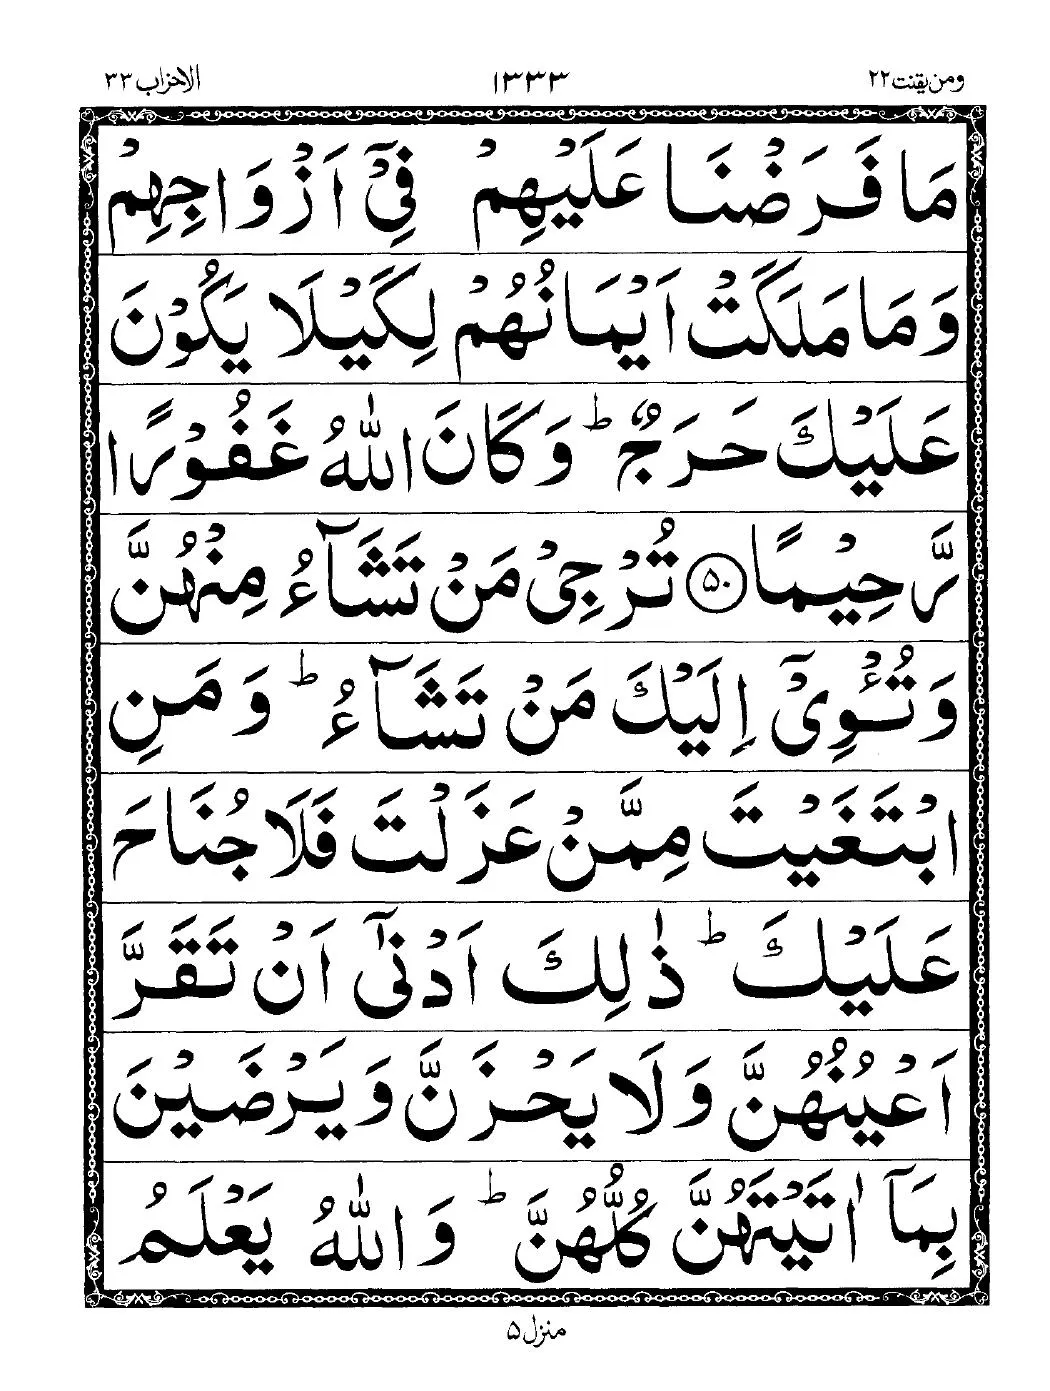 ومن یقنت ۲۲ ۱۳۳۳ الاحزاب ۳۳
مَا فَرَضْنَا عَلَيْهِمْ فِيْٓ اَزْوَاجِهِمْ
وَمَا مَلَكَتْ اَيْمَانُهُمْ لِكَيْلَا يَكُوْنَ
عَلَيْكَ حَرَجٌ ؕ وَكَانَ اللّٰهُ غَفُوْرًا
رَّحِيْمًا ۵۰ تُرْجِيْ مَنْ تَشَآءُ مِنْهُنَّ
وَتُـْٔوِيْٓ اِلَيْكَ مَنْ تَشَآءُ ؕ وَمَنِ
ابْتَغَيْتَ مِمَّنْ عَزَلْتَ فَلَا جُنَاحَ
عَلَيْكَ ؕ ذٰلِكَ اَدْنٰٓى اَنْ تَقَرَّ
اَعْيُنُهُنَّ وَلَا يَحْزَنَّ وَيَرْضَيْنَ
بِمَآ اٰتَيْتَهُنَّ كُلُّهُنَّ ؕ وَاللّٰهُ يَعْلَمُ
منزل ۵